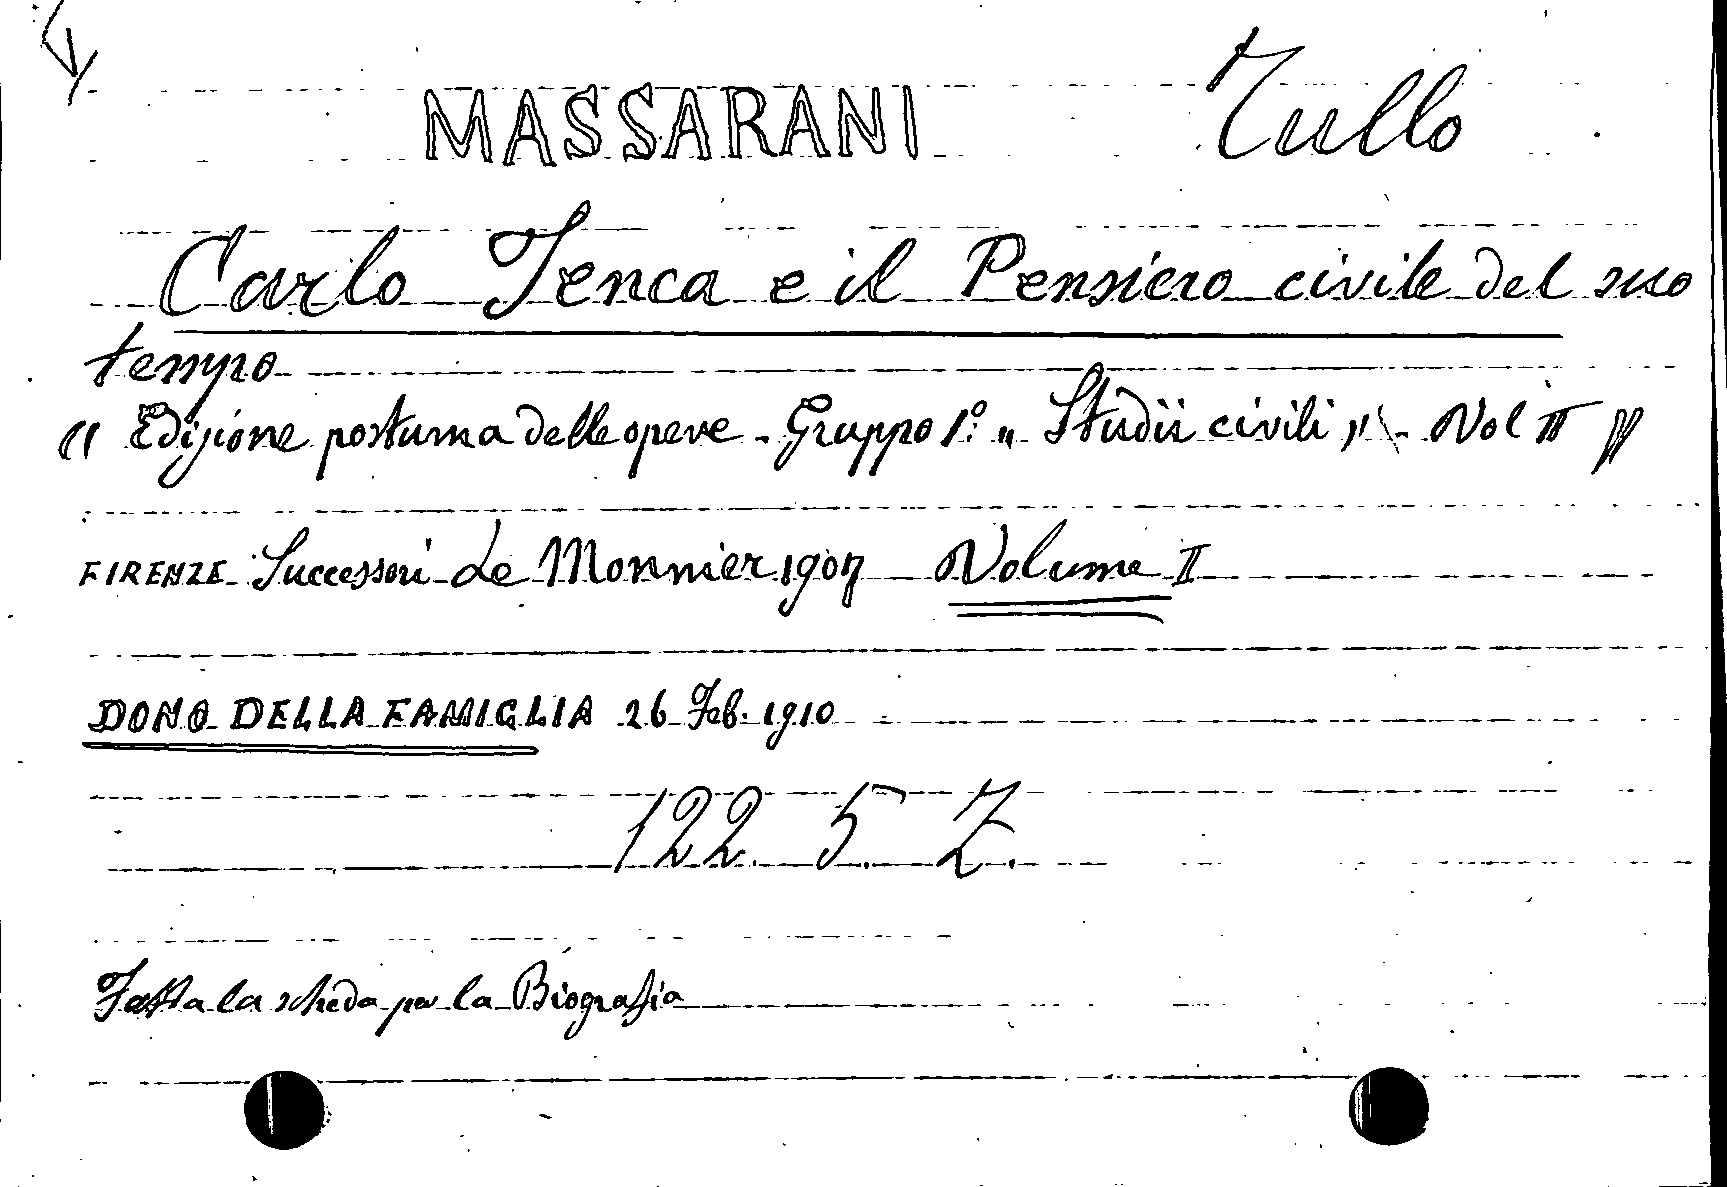 MASSARANI Tullo
Carlo Tenca e il Pensiero civile del suo
tempo
(( Edizione postuma delle opere - Gruppo 1º „ Studii civili „ - Vol II ))
FIRENZE Successori Le Monnier 1907 Volume II
DONO DELLA FAMIGLIA 26 Feb. 1910
122. 5. Z.
Fatta la scheda per la Biografia